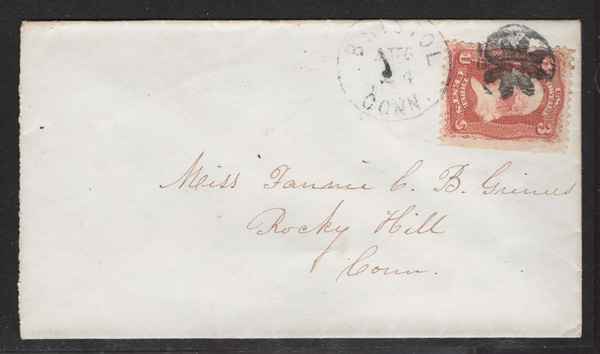 BRISTOL
CONN
U.S. POSTAGE
THREE
CENTS
U 3 S 3
Miss Fannie C. B. Grimes
Rocky Hill
Conn.